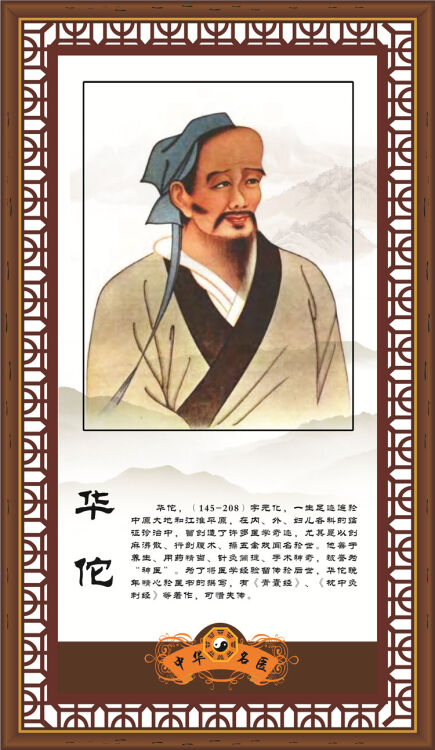 华佗
华佗，（145-208）字元化，一生足迹遍於
中原大地和江淮平原，在内、外、妇儿各科的临
证珍治中，曾创造了许多医学奇迹，尤其是以创
麻沸散、行剖腹术、操五禽戏闻名於世。他善于
养生、用药精当、针灸简捷、手术神奇，被誉为
“神医”。为了将医学经验留传於后世，华佗晚
年精心於医书的撰写，有《青囊经》、《枕中灸
刺经》等著作，可惜失传。
中华名医